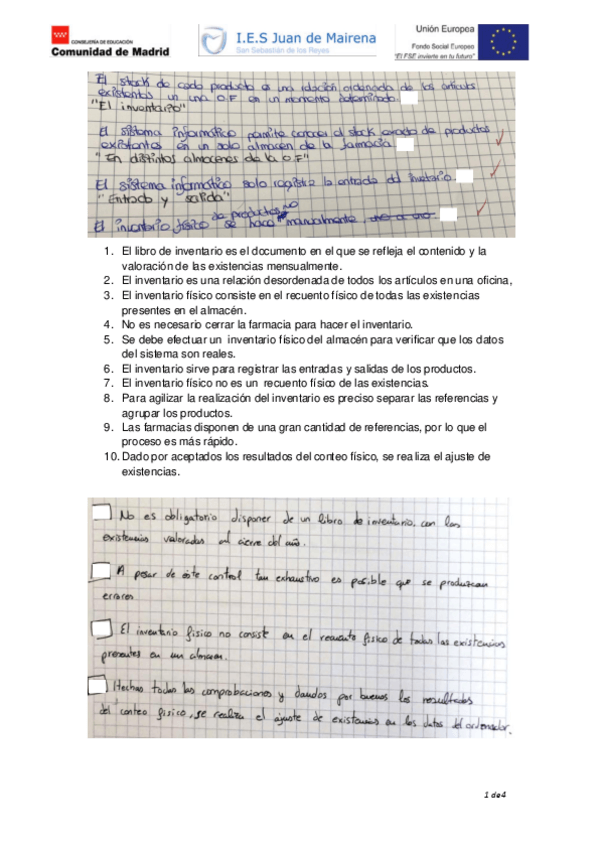 CONSEJERÍA DE EDUCACIÓN
Comunidad de Madrid
I.E.S Juan de Mairena
San Sebastián de los Reyes
Unión Europea
Fondo Social Europeo
"El FSE invierte en tu futuro"
El stock de cada producto es una relación ordenada de los artículos
existentes en una O.F en un momento determinado.
"El inventario"
El sistema informático permite conocer el stock exacto de productos
existentes en un solo almacén de la farmacia
"En distintos almacenes de la O.F"
El sistema informático solo registra la entrada del inventario.
"Entrada y salida"
de productos no
El inventario físico se hace manualmente
1. El libro de inventario es el documento en el que se refleja el contenido y la
valoración de las existencias mensualmente.
2. El inventario es una relación desordenada de todos los artículos en una oficina,
3. El inventario físico consiste en el recuento físico de todas las existencias
presentes en el almacén.
4. No es necesario cerrar la farmacia para hacer el inventario.
5. Se debe efectuar un inventario físico del almacén para verificar que los datos
del sistema son reales.
6. El inventario sirve para registrar las entradas y salidas de los productos.
7. El inventario físico no es un recuento físico de las existencias.
8. Para agilizar la realización del inventario es preciso separar las referencias y
agrupar los productos.
9. Las farmacias disponen de una gran cantidad de referencias, por lo que el
proceso es más rápido.
10. Dado por aceptados los resultados del conteo físico, se realiza el ajuste de
existencias.
No es obligatorio disponer de un libro de inventario, con las
existencias valoradas al cierre del año.
A pesar de este control tan exhaustivo es posible que se produzcan
errores
El inventario físico no consiste en el recuento físico de todas las existencias
presentes en un almacen.
Hechas todas las comprobaciones y dandos por buenos los resultados
del conteo físico, se realiza el ajuste de existencias en los datos del ordenador.
1 de 4